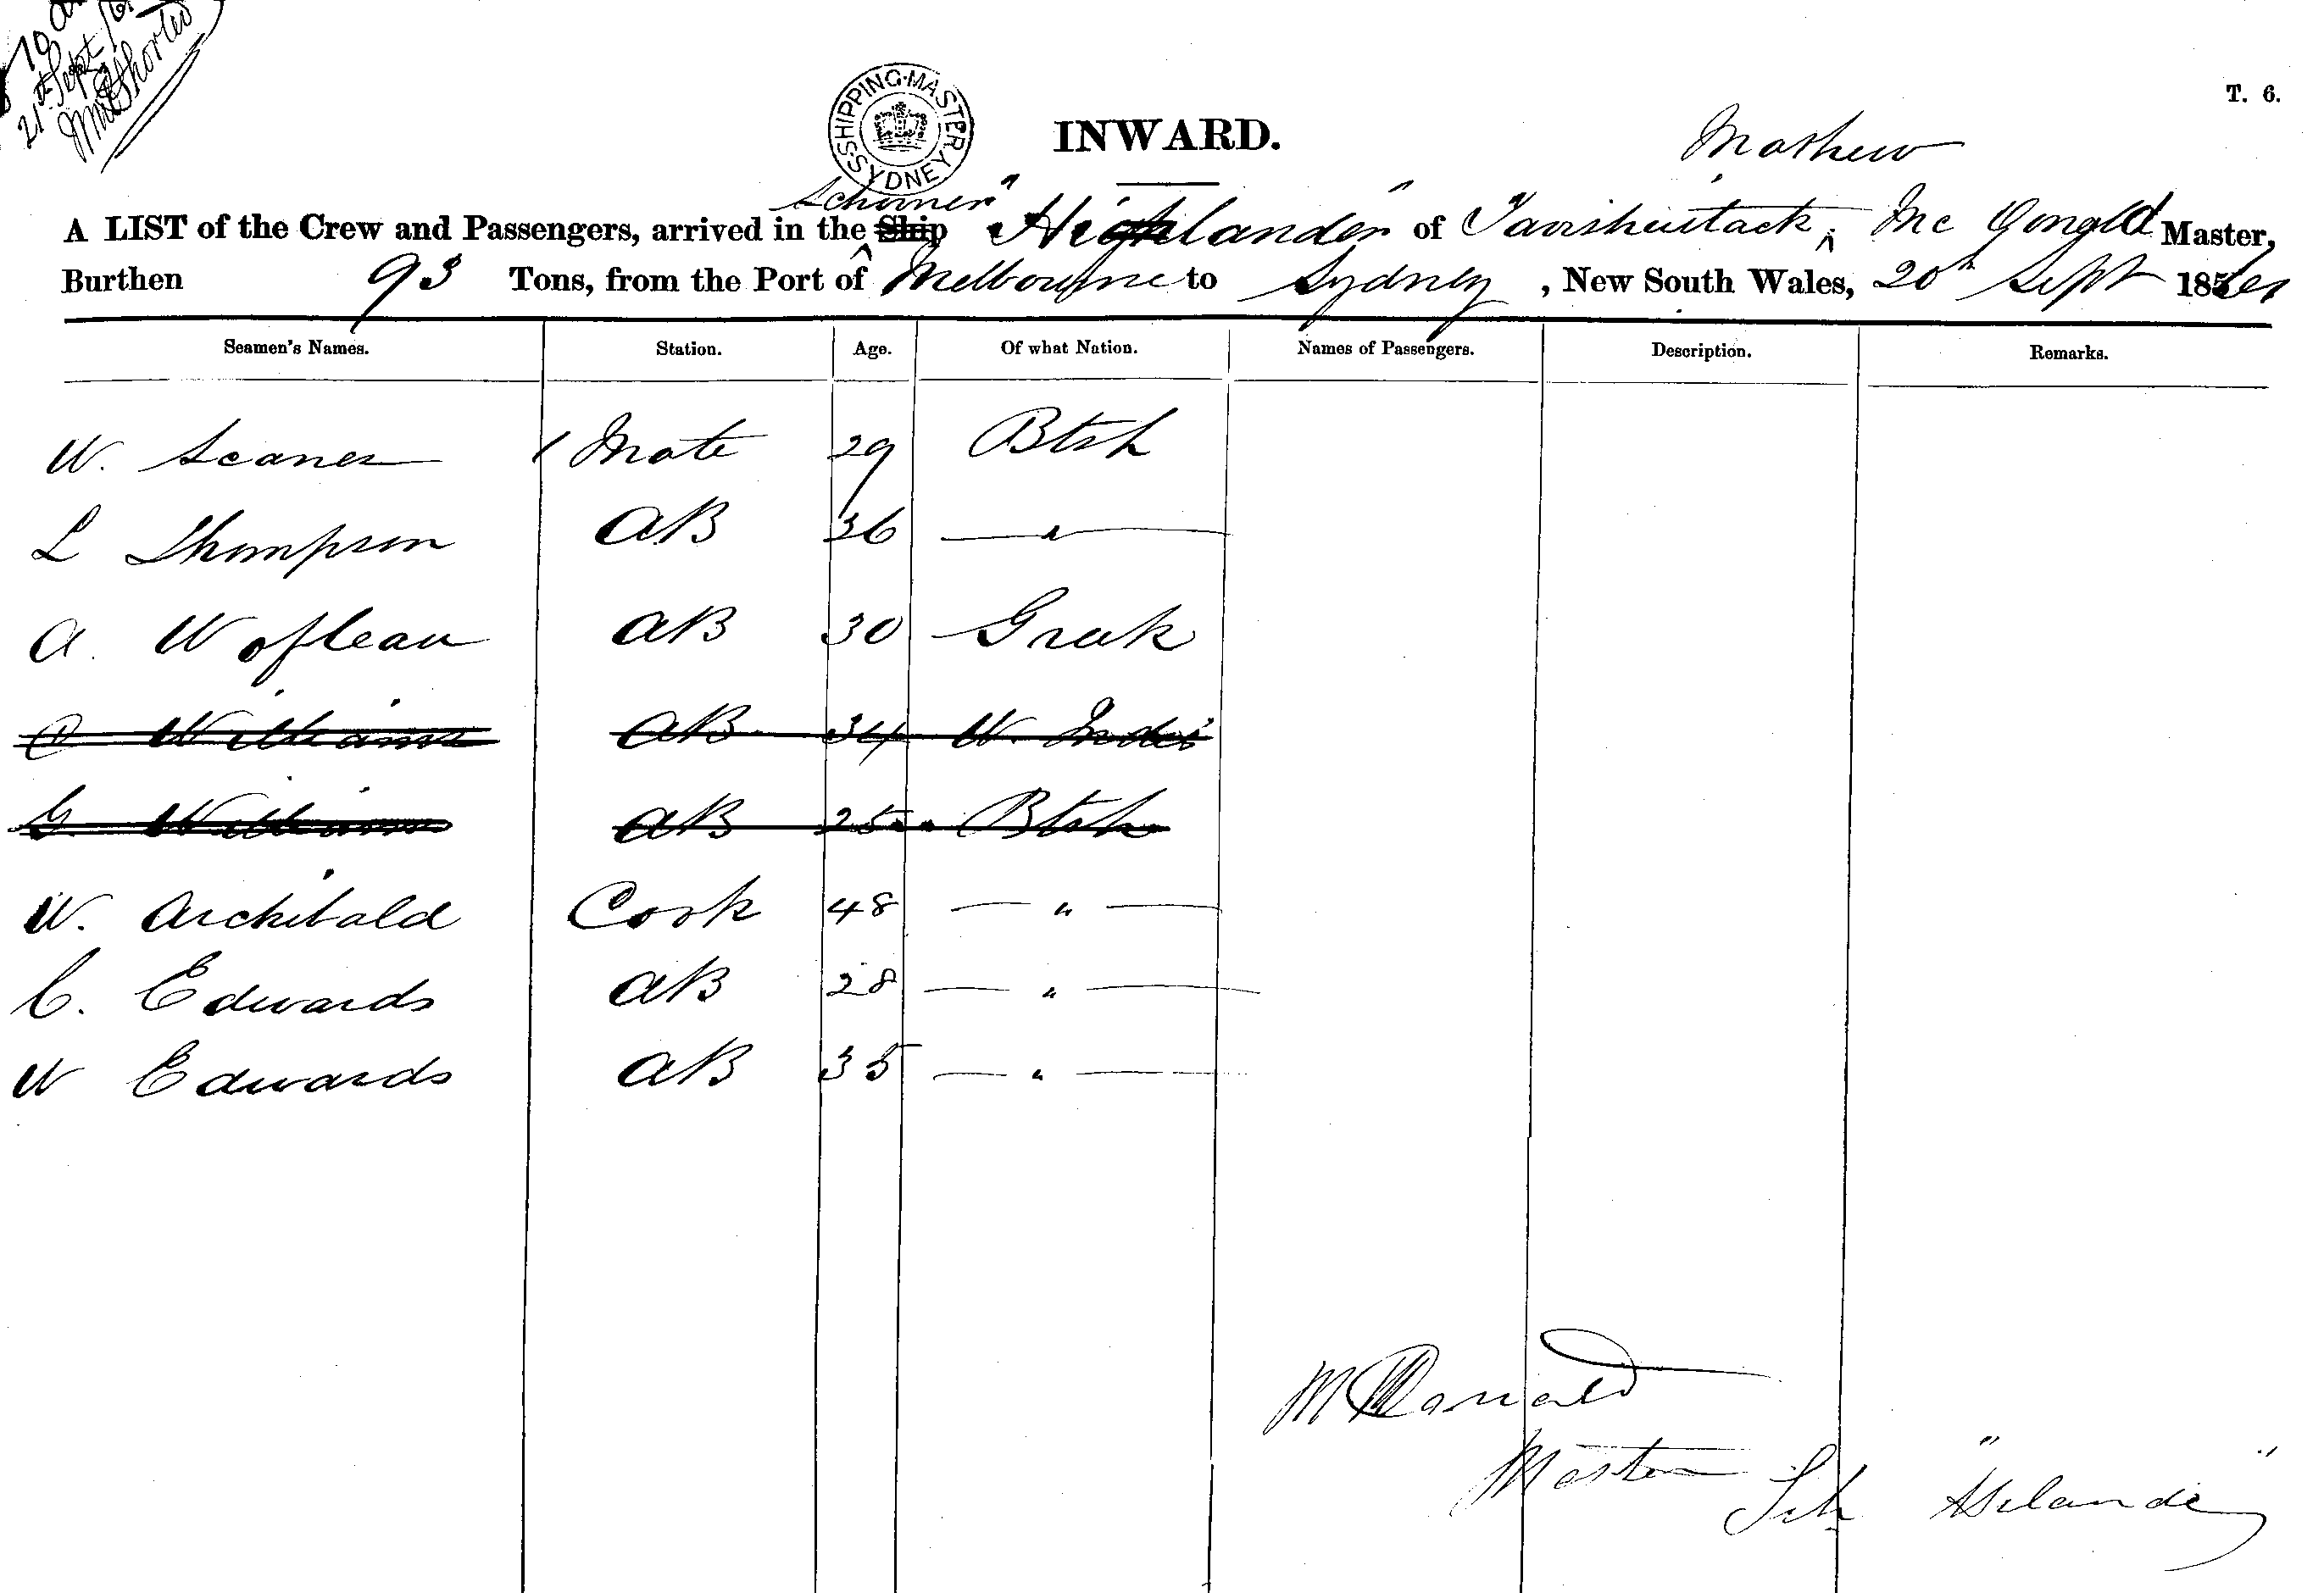 21st Sept
SHIPPING MASTER SYDNEY
T. 6.
INWARD.
Mathew
Schooner
A LIST of the Crew and Passengers, arrived in the Ship "Highlander" of Mc Donald Master,
Burthen 93 Tons, from the Port of Melbourne to Sydney, New South Wales, 20th Sept 18
Seamen's Names. Station. Age. Of what Nation. Names of Passengers. Description. Remarks.
W. Scanes Mate 29 Btsh
L Thompson AB 36 — " —
A. AB 30 Greek
Williams AB 34 W. Indis
G. Williams AB 25 Btsh
W. Archibald Cook 48 — " —
C. Edwards AB 28 — " —
W Edwards AB 35 — " —
M Donald
Master Sch